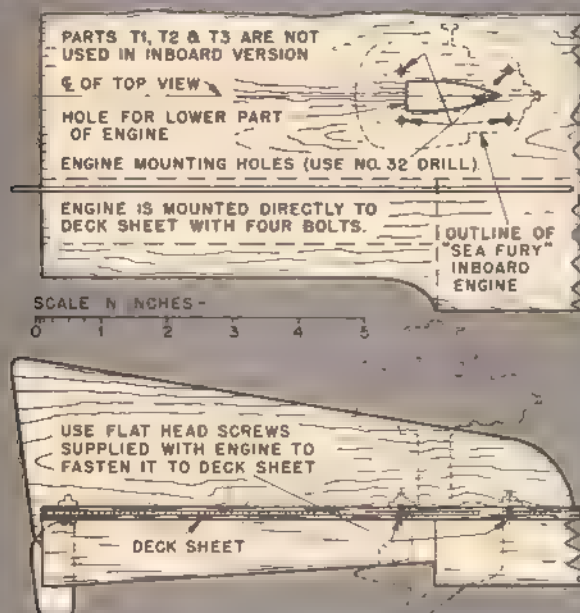 PARTS T1, T2 & T3 ARE NOT
USED IN INBOARD VERSION
℄ OF TOP VIEW
HOLE FOR LOWER PART
OF ENGINE
ENGINE MOUNTING HOLES (USE NO. 32 DRILL)
ENGINE IS MOUNTED DIRECTLY TO
DECK SHEET WITH FOUR BOLTS.
OUTLINE OF
"SEA FURY"
INBOARD
ENGINE
SCALE N NCHES -
0 1 2 3 4 5
USE FLAT HEAD SCREWS
SUPPLIED WITH ENGINE TO
FASTEN IT TO DECK SHEET
DECK SHEET